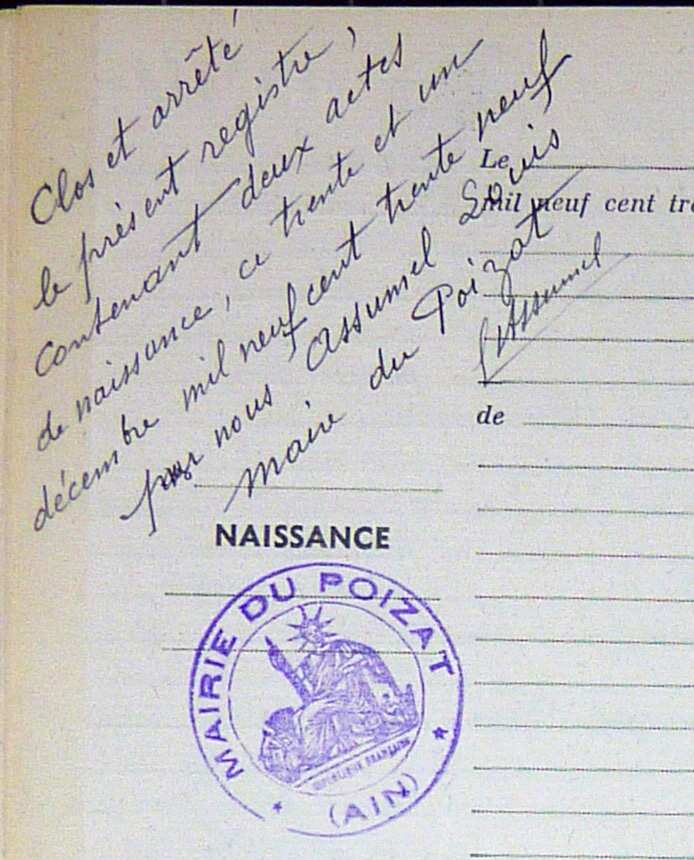 Clos et arrêté
le présent registre,
contenant deux actes
de naissance, ce trente et un
décembre mil neuf cent trente neuf
par nous Assumel Louis
Maire du Poizat
Assumel
Le
mil neuf cent tre
de
NAISSANCE
MAIRIE DU POIZAT
REPUBLIQUE FRANÇAISE
(AIN)